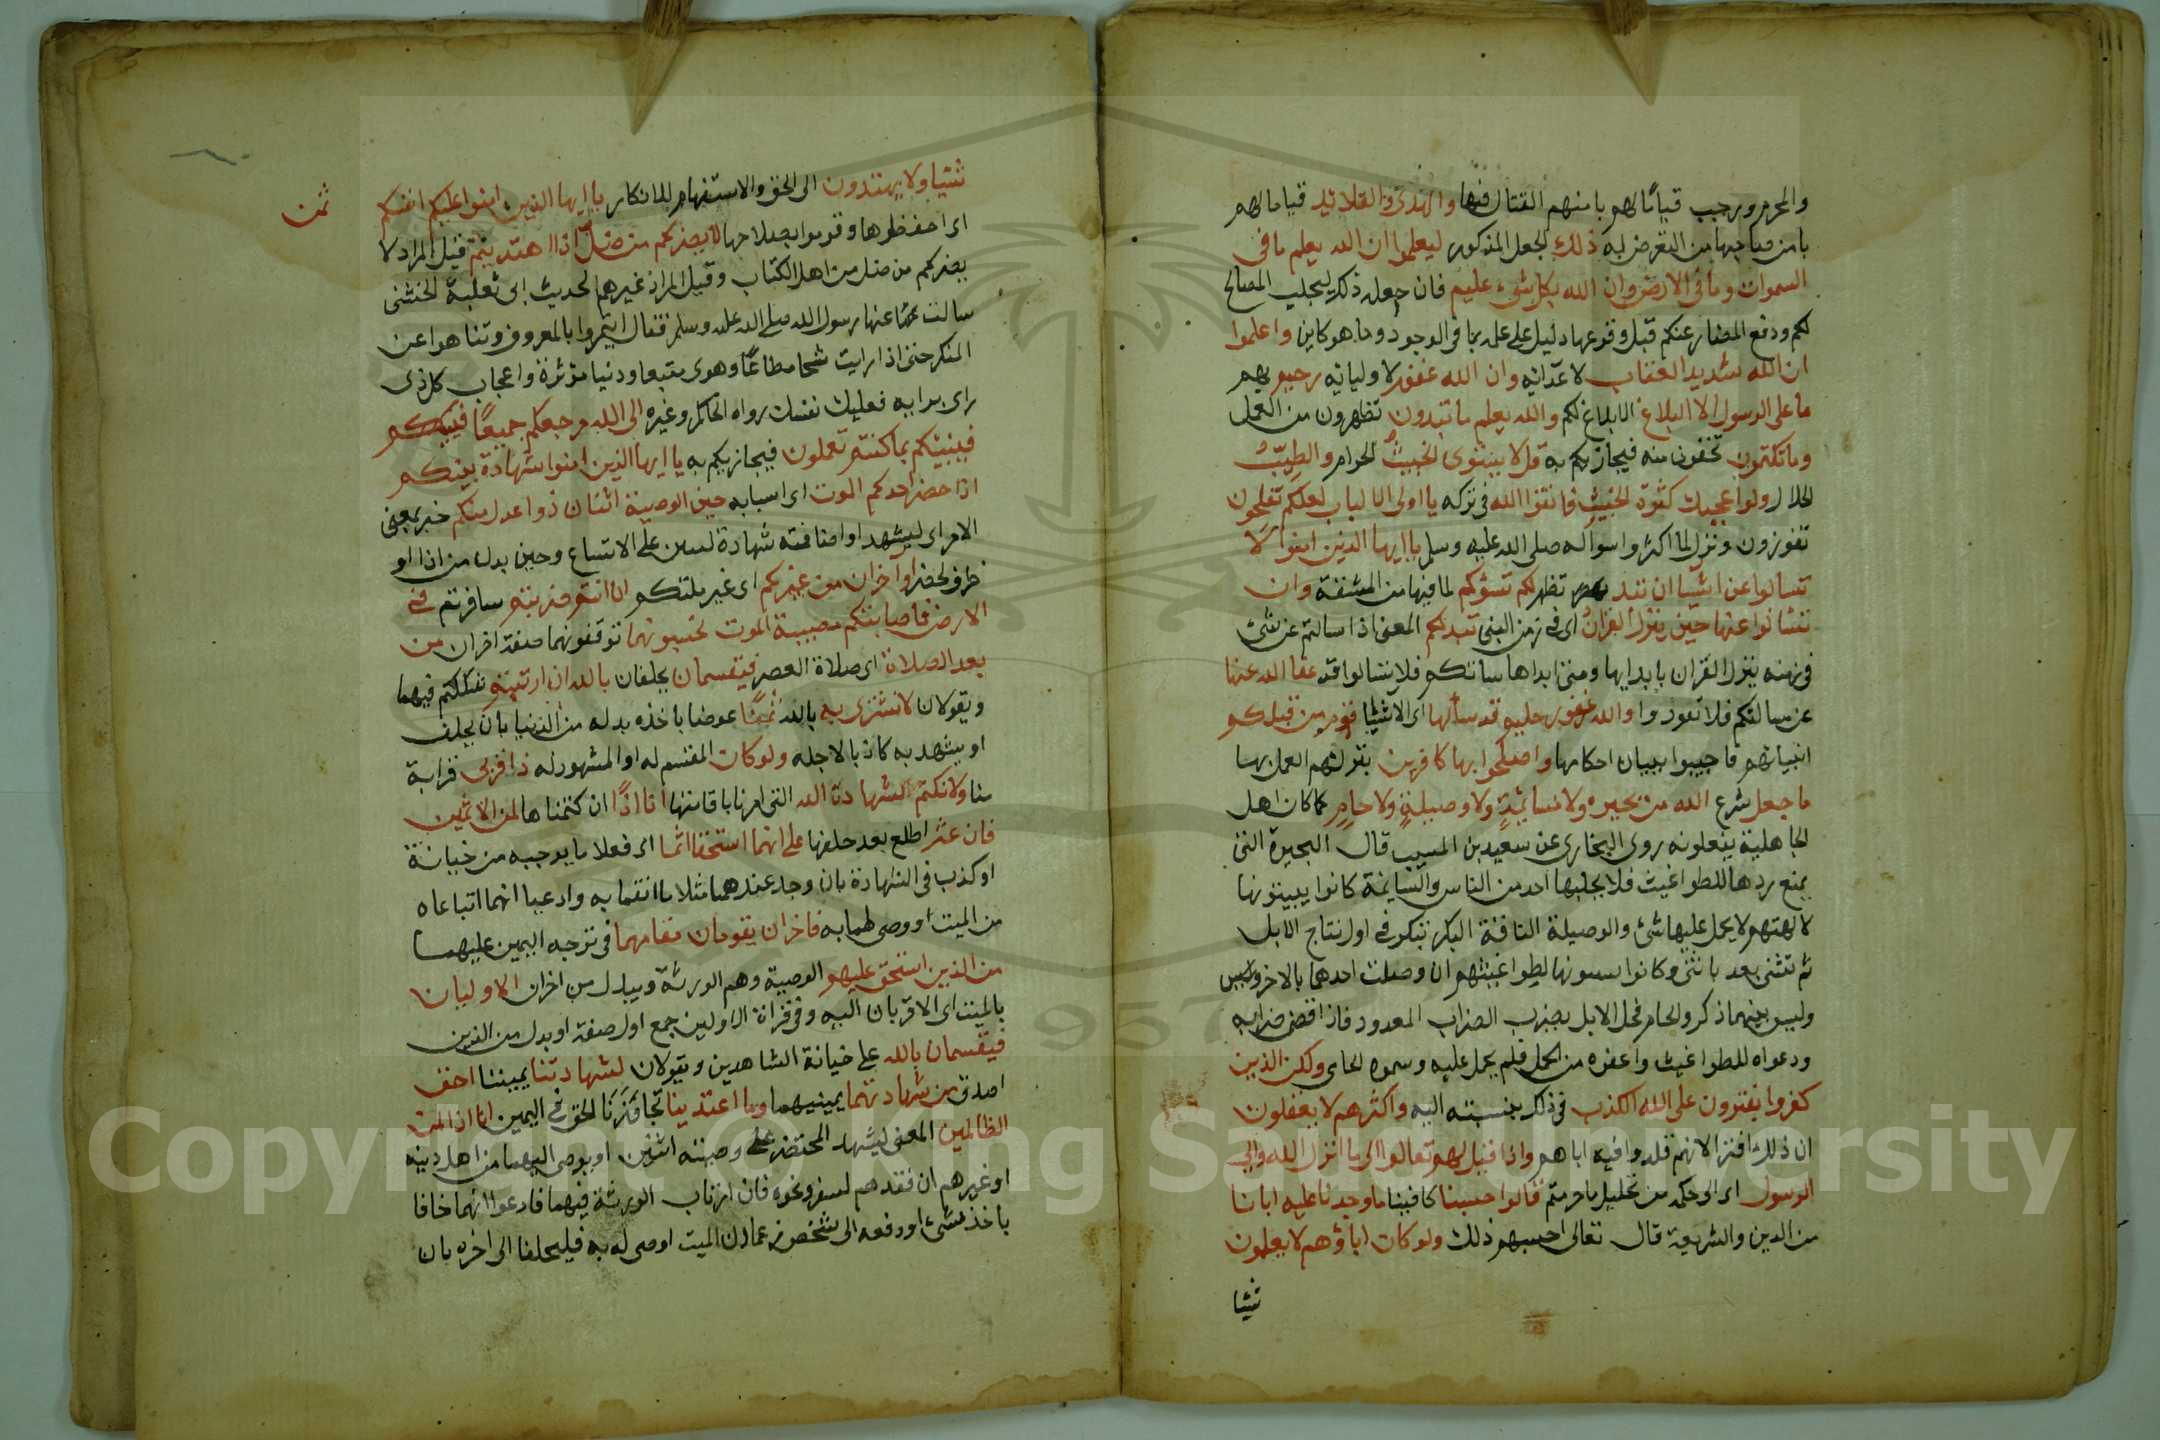 والمحرم ورجب قيامًا لهم بامنهم القتال فيها والهدى والقلائد قياما لهم
بامن صاحبهما من التعرض له ذلك الجعل المذكور لتعلموا ان الله يعلم ما فى
السموات وما فى الارض وان الله بكل شىء عليم فان جعله ذكر لجلب المصالح
لكم ودفع المضار عنكم قبل وقوعها دليل على علمه بما فى الوجود وما هو كاين واعلموا
ان الله شديد العقاب لاعدائه وان الله غفور لاوليائه رحيم بهم
ما على الرسول الا البلاغ الابلاغ لكم والله يعلم ما تبدون تظهرون من العمل
وما تكتمون تخفون منه فيجازيكم به قل لا يستوى الخبيث الحرام والطيب
الحلال ولو اعجبك كثرة الخبيث فاتقوا الله فى تركه يا اولى الالباب لعلكم تفلحون
تفوزون ونزل لما اكثروا سواله صلى الله عليه وسلم يا ايها الذين امنوا لا
تسالوا عن اشيا ان تبد تظهر لكم تسؤكم لما فيها من المشقة وان
تسالوا عنها حين ينزل القران اى فى زمن النبى تبد لكم المعنى اذا سالتم عن شئ
فى زمنه ينزل القران بابدايها ومتى ابداها ساتكم فلا تسالوا قد عفا الله عنها
عن مسالتكم فلا تعودوا والله غفور حليم قد سألها اى الاشيا قوم من قبلكم
انبياءهم فاجيبوا ببيان احكامها واصبحوا بها كافرين بتركهم العمل بها
ما جعل شرع الله من بحيرة ولا سائبة ولا وصيلة ولا حام كما كان اهل
الجاهلية يفعلونه روى البخارى عن سعيد بن المسيب قال البحيرة التى
يمنع درها للطواغيث فلا يحلبها احد من الناس والسايبة كانوا يسيبونها
لالهتهم لا يحمل عليها شئ والوصيلة الناقة البكر تبكر فى اول نتاج الابل
ثم تثنى بعد بانثى وكانوا يسيبونها لطواغيتهم ان وصلت احدهما بالاخر وليس
وليس بينهما ذكر والحام فحل الابل يضرب الضراب المعدود فاذا قضى ضرابه
ودعواه للطواغيث واعفوه من الحمل فلم يحمل عليه وسموه الحامى ولكن الذين
كفروا يفترون على الله الكذب فى ذلك بنسبته اليه واكثرهم لا يعقلون
ان ذلك افترا لانهم قلدوا فيه اباهم واذا قيل لهم تعالوا الى ما انزل الله والى
الرسول اى الى حكمه من تحليل ما حرمتم قالوا حسبنا كافينا ما وجدنا عليه اباءنا
من الدين والشريعة قال تعالى احسبهم ذلك ولو كان اباؤهم لا يعلمون
شيئا
شيئا ولا يهتدون الى الحق والاستفهام للانكار يا ايها الذين امنوا عليكم انفسكم
ثمن
اى احفظوها وقوموا بصلاحها لا يضركم من ضل اذا اهتديتم قيل المراد لا
يضركم من ضل من اهل الكتاب وقيل المراد غيرهم لحديث ابى ثعلبة الخشنى
سالت عنها رسول الله صلى الله عليه وسلم فقال ايتمروا بالمعروف وتناهوا عن
المنكر حتى اذا رايت شحا مطاعًا وهوى متبعا ودنيا مؤثرة واعجاب كل ذى
راى برايه فعليك نفسك رواه الحاكم وغيره الى الله مرجعكم جميعًا
فينبئكم بما كنتم تعملون فيجازيكم به يا ايها الذين امنوا شهادة بينكم
اذا حضر احدكم الموت اى اسبابه حين الوصية اثنان ذوا عدل منكم خبر بمعنى
الامر اى ليشهد واضافته شهادة لبين على الاتساع وحين بدل من اذا او
ظرف لحضر او آخران من غيركم اى غير ملتكم ان انتم ضربتم سافرتم فى
الارض فاصابتكم مصيبة الموت تحبسونهما توقفونهما صفة اخران من
بعد الصلاة اى صلاة العصر فيقسمان يحلفان بالله ان ارتبتم شككتم فيهما
ويقولان لا نشترى به بالله ثمنًا عوضا ناخذه بدله من الدنيا بان يحلف
او يشهد به كاذبا لاجله ولو كان المقسم له او المشهود له ذا قربى قرابة
منا ولا نكتم شهادة الله التى امرنا باقامتها انا اذًا ان كتمناها لمن الاثمين
فان عثر اطلع بعد حلفهما على انهما استحقا اثما اى فعلا ما يوجبه من خيانة
او كذب فى الشهادة بان وجد عندهما مثلا ما اتهما به وادعيا انهما ابتاعاه
من الميت او وصى لهما به فاخران يقومان مقامهما فى توجه اليمين عليهما
من الذين استحق عليهم الوصية وهم الورثة ويبدل من اخران الاوليان
بالميت اى الاقربان اليه وفى قراة الاولين جمع اول صفة او بدل من الذين
فيقسمان بالله على خيانة الشاهدين ويقولان لشهادتنا يميننا احق
اصدق من شهادتهما يمينهما وما اعتدينا تجاوزنا الحق فى اليمين انا اذا لمن
الظالمين المعنى ليشهد المحتضر على وصيته اثنين او يوصى اليهما من اهل دينه
او غيرهم ان فقدهم لسفر ونحوه فان ارتاب الورثة فيهما فادعوا انهما خانا
باخذ شئ او دفعه الى شخص زعما ان الميت اوصى له به فليحلفا الى اخره بان
Copyright © King Saud University
1957